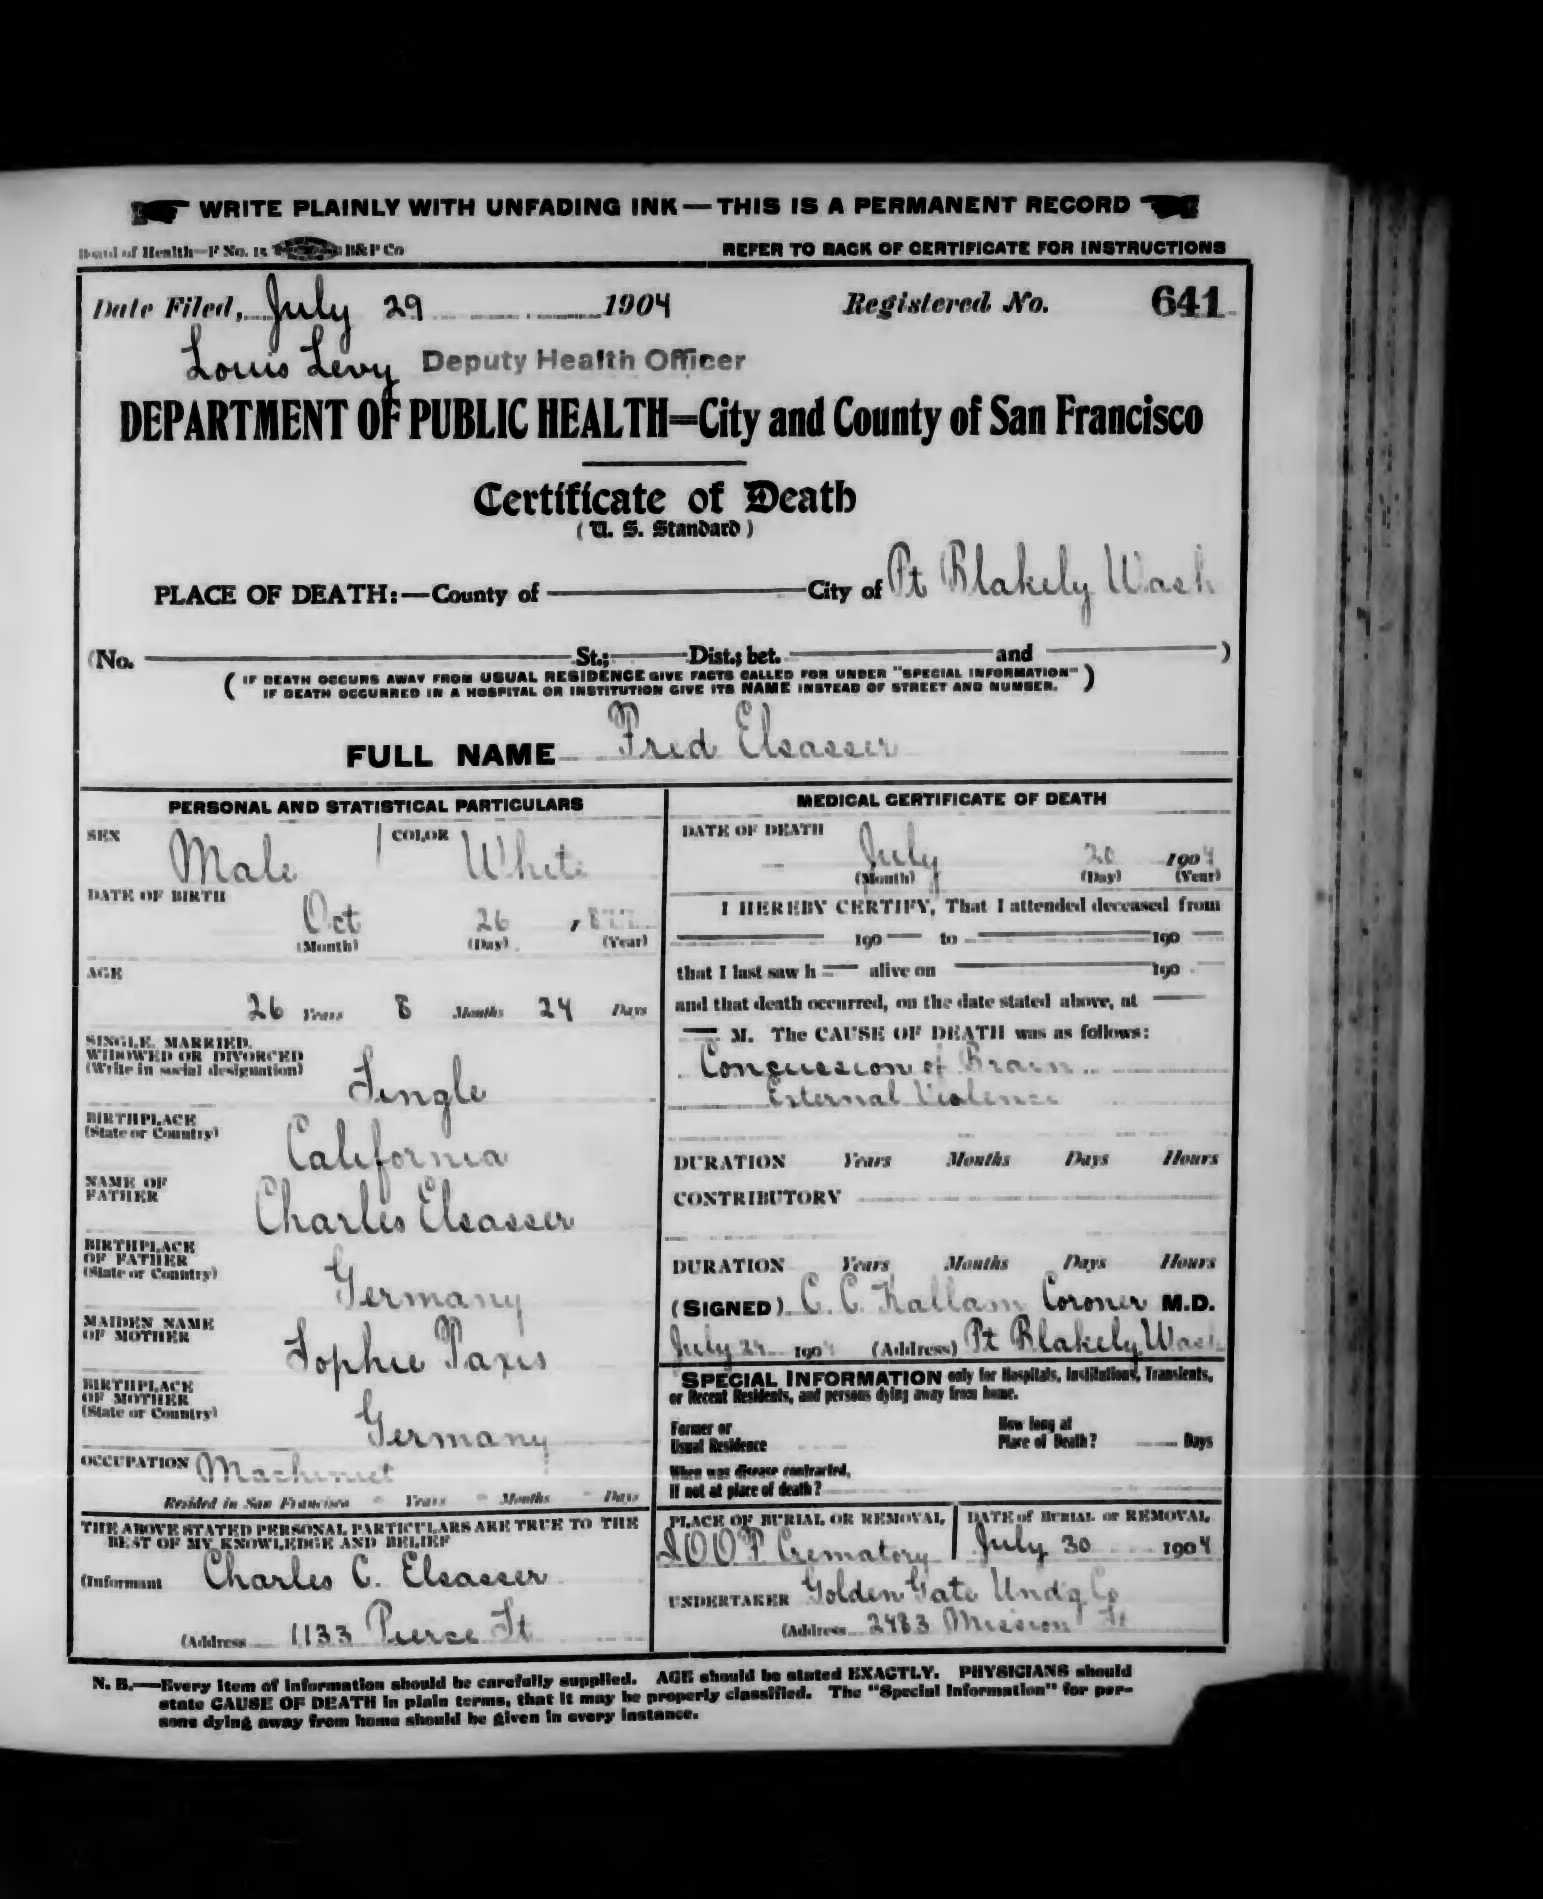 WRITE PLAINLY WITH UNFADING INK—THIS IS A PERMANENT RECORD
Board of Health—F No. 15 B&P Co REFER TO BACK OF CERTIFICATE FOR INSTRUCTIONS
Date Filed, July 29 1904 Registered No. 641
Louis Levy Deputy Health Officer
DEPARTMENT OF PUBLIC HEALTH=City and County of San Francisco
Certificate of Death
(U. S. Standard)
PLACE OF DEATH:—County of City of Pt Blakely Wash
(No. St.; Dist.; bet. and )
(IF DEATH OCCURS AWAY FROM USUAL RESIDENCE GIVE FACTS CALLED FOR UNDER "SPECIAL INFORMATION"
IF DEATH OCCURRED IN A HOSPITAL OR INSTITUTION GIVE ITS NAME INSTEAD OF STREET AND NUMBER.)
FULL NAME Fred Elsasser
PERSONAL AND STATISTICAL PARTICULARS
SEX Male COLOR White
DATE OF BIRTH
Oct 26
(Month) (Day) (Year)
AGE
26 Years 8 Months 24 Days
SINGLE, MARRIED,
WIDOWED OR DIVORCED
(Write in social designation)
Single
BIRTHPLACE
(State or Country)
California
NAME OF
FATHER
Charles Elsasser
BIRTHPLACE
OF FATHER
(State or Country)
Germany
MAIDEN NAME
OF MOTHER
Sophie Paris
BIRTHPLACE
OF MOTHER
(State or Country)
Germany
OCCUPATION Machinist
Resided in San Francisco Years Months Days
THE ABOVE STATED PERSONAL PARTICULARS ARE TRUE TO THE
BEST OF MY KNOWLEDGE AND BELIEF
(Informant Charles C. Elsasser
(Address 1133 Pierce St
MEDICAL CERTIFICATE OF DEATH
DATE OF DEATH
July 20 1904
(Month) (Day) (Year)
I HEREBY CERTIFY, That I attended deceased from
190 to 190
that I last saw h alive on 190
and that death occurred, on the date stated above, at
M. The CAUSE OF DEATH was as follows:
Concussion of Brain
External Violence
DURATION Years Months Days Hours
CONTRIBUTORY
DURATION Years Months Days Hours
(SIGNED) C. C. Kallam Coroner M.D.
July 190 (Address) Pt Blakely Wash
SPECIAL INFORMATION only for Hospitals, Institutions, Transients,
or Recent Residents, and persons dying away from home.
Former or
Usual Residence
How long at
Place of Death? Days
When was disease contracted,
If not at place of death?
PLACE OF BURIAL OR REMOVAL DATE of BURIAL or REMOVAL
IOOF Crematory July 30 1904
UNDERTAKER Golden Gate Undg Co
(Address 2483 Mission St
N. B.—Every item of information should be carefully supplied. AGE should be stated EXACTLY. PHYSICIANS should
state CAUSE OF DEATH in plain terms, that it may be properly classified. The "Special Information" for per-
sons dying away from home should be given in every instance.